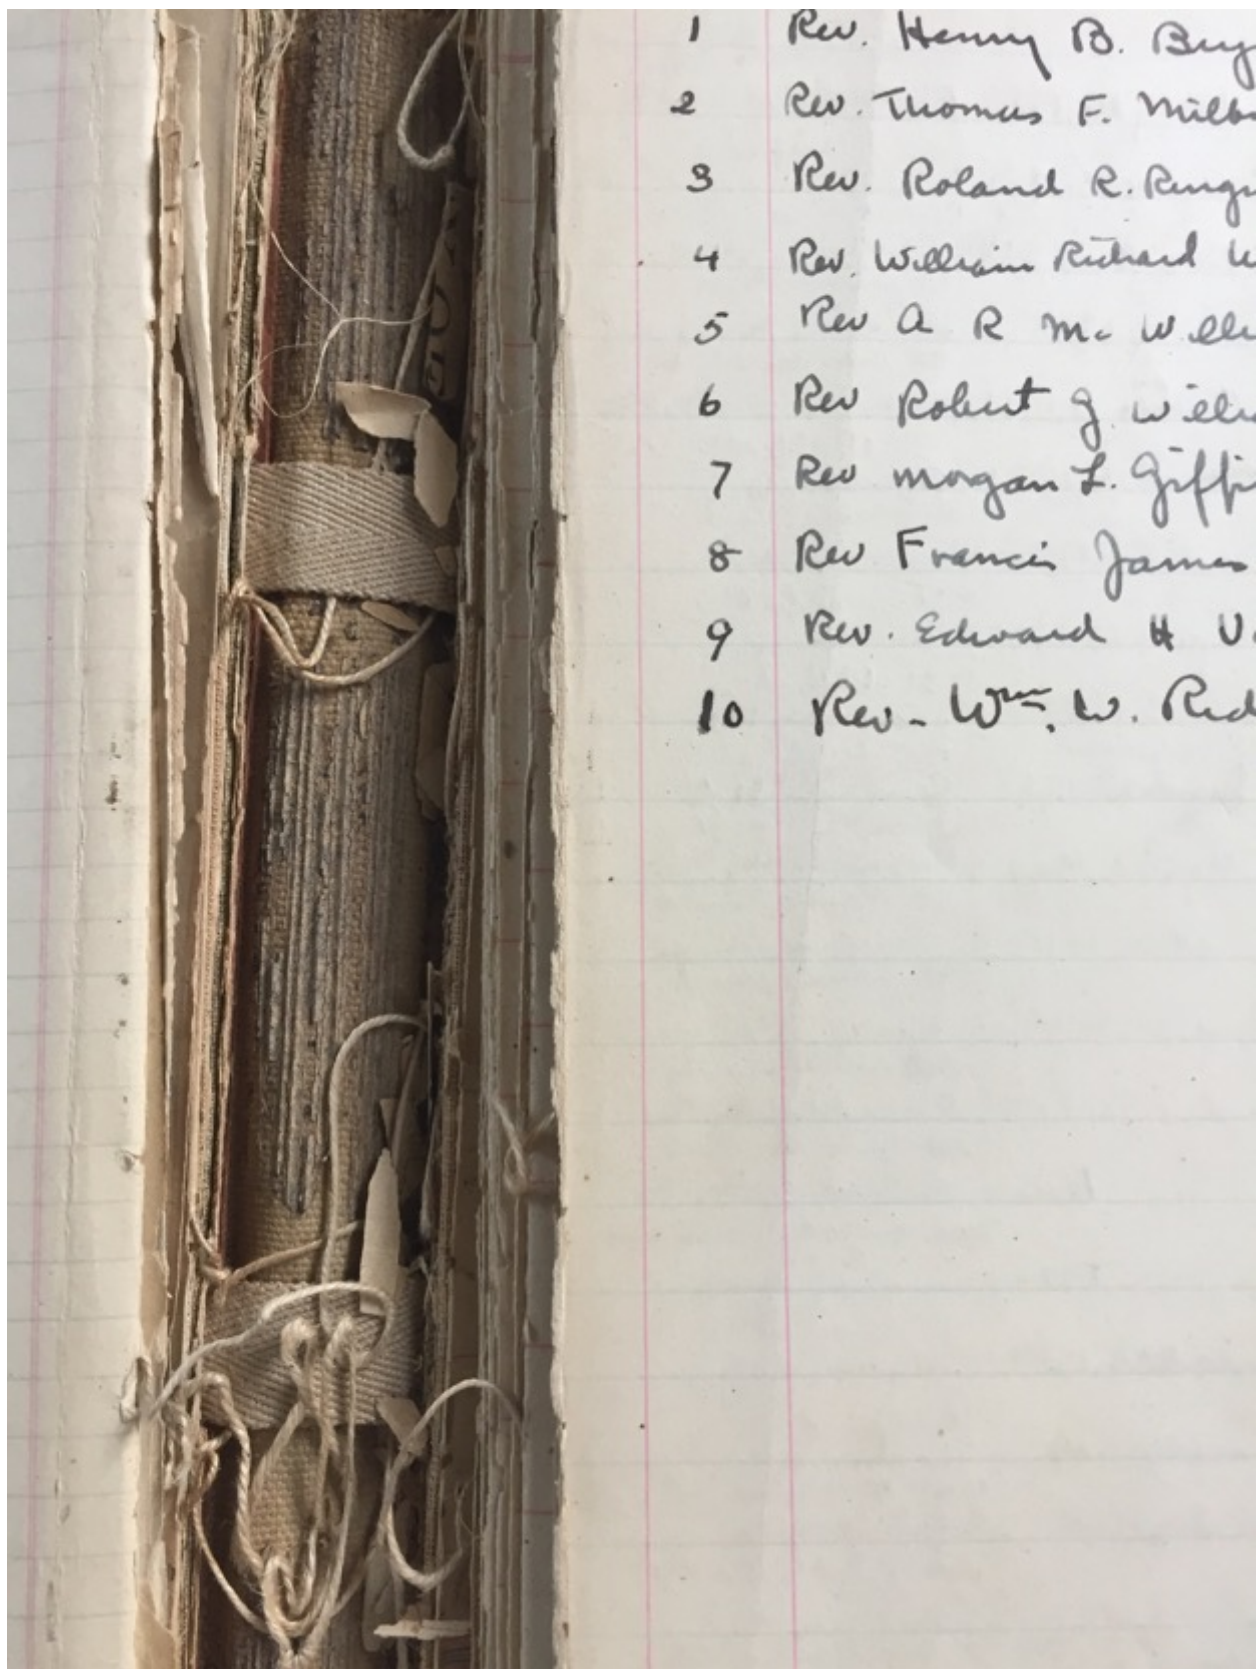 1 Rev. Henry B. Bry
2 Rev. Thomas F. Milb
3 Rev. Roland R. Ringw
4 Rev. William Richard W
5 Rev A R Mc Willi
6 Rev Robert J. Willi
7 Rev Morgan L. Giffi
8 Rev Francis James
9 Rev. Edward H V
10 Rev - Wm. W. Rid